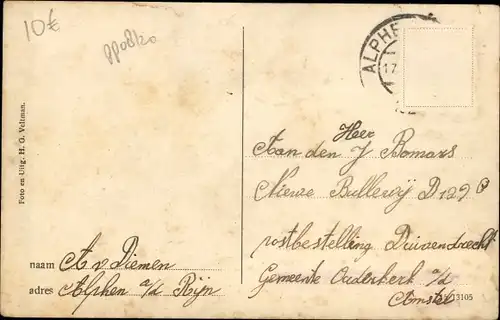 10€
ALPHE
17
Foto en Uitg. H. G. Veltman.
Heer
Aan den J Bomars
Nieuwe Bullewij D129
postbestelling Duivendrecht
Gemeente Ouderkerk a/d
Amstel
naam A v Diemen
adres Alphen a/d Rijn
13105